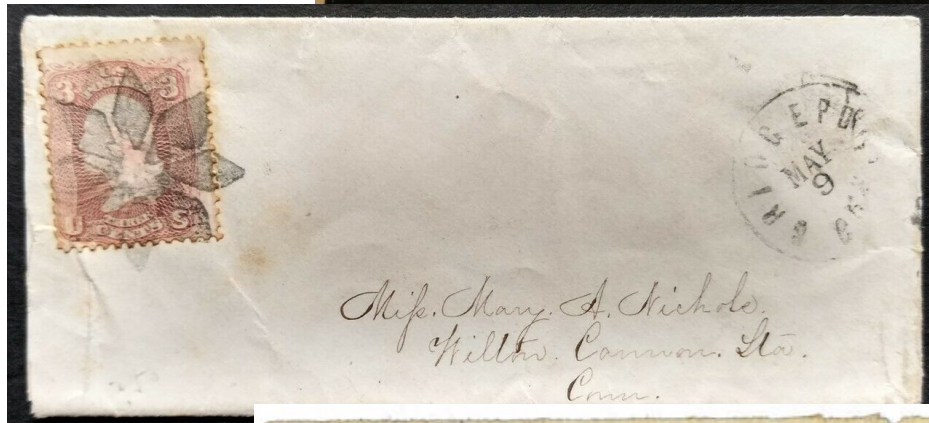 3 3
U S
CENTS
BRIDGEPORT CONN
MAY
9
Miſs. Mary. A. Nichols.
Wilton. Cannon. Sta.
Conn.